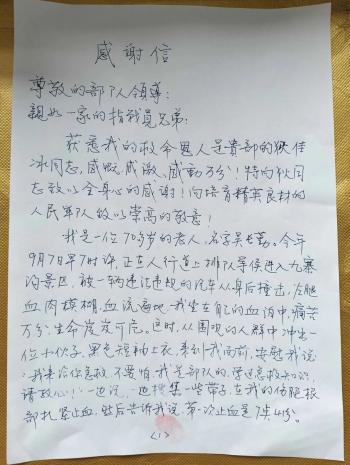 感謝信
尊敬的部队领导:
親如一家的指战員兄弟:
获悉我的救命恩人是貴部的狄佳
冰同志,感慨、感激、感動万分!特向狄同
志致以全身心的感谢!向培育精英良材的
人民軍队致以崇高的敬意!
我是一位70多岁的老人,名字吴长勤。今年
9月7日早7时许,正在人行道上排队等侯进入九寨
沟景区,被一辆违记违规的汽车从身后撞击,左腿
血肉模糊,血流遍地。我坐在自己的血泊中,痛苦
万分,生命岌岌可危。这时,从围观的人群中冲出一
位小伙子,黑色短袖上衣,来到我面前,安慰我说:
"我来给你急救,不要怕,我是部队的,学过急救知识,
请放心!"一边说,一边搜集一些带子,在我的伤腿根
部扎紧止血,然后告诉我说,第一次止血是7点41分。
<1>